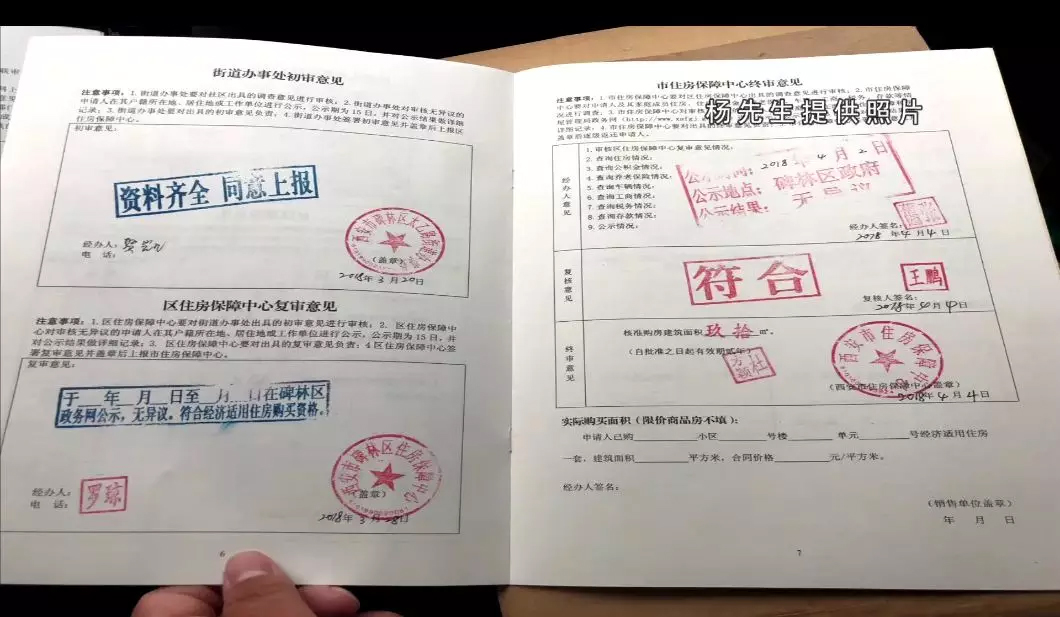 街道办事处初审意见
注意事项：1. 街道办事处要对社区出具的调查意见进行审核；2. 街道办事处对审核无异议的
申请人在其户籍所在地、居住地或工作单位进行公示，公示期为15日，并对公示结果做详细
记录；3. 街道办事处要对出具的初审意见负责；4. 街道办事处签署初审意见并盖章后上报区
住房保障中心。
初审意见：
资料齐全 同意上报
经办人：
电 话：
（盖章）
2018年 3月20日
区住房保障中心复审意见
注意事项：1. 区住房保障中心要对街道办事处出具的初审意见进行审核；2. 区住房保障中
心对审核无异议的申请人在其户籍所在地、居住地或工作单位进行公示，公示期为15日，并
对公示结果做详细记录；3. 区住房保障中心要对出具的复审意见负责；4 区住房保障中心签
署复审意见并盖章后上报市住房保障中心。
复审意见：
于 年 月 日至 月 日在碑林区
政务网公示，无异议。符合经济适用住房购买资格。
西安市碑林区住房保障中心
经办人：
罗琼
电 话：
（盖章）
2018年 3月28日
6
市住房保障中心终审意见
杨先生提供照片
盖章后逐级返还申请人。
经办人意见
1. 审核区住房保障中心复审意见情况：
2. 查询住房情况：
3. 查询公积金情况：
4. 查询养老保险情况：
5. 查询车辆情况：
6. 查询工商情况：
7. 查询税务情况：
8. 查询存款情况：
9. 公示情况：
2018年4月2日
公示地点：碑林区政府
公示结果：无
经办人签名：
2018年4月4日
复核意见
符合
王鹏
复核人签名：
2018年4月4日
终审意见
核准购房建筑面积 玖拾 ㎡。
（自批准之日起有效期贰年）
西安市住房保障中心
（西安市住房保障中心盖章）
2018年4月4日
实际购买面积（限价商品房不填）：
申请人已购______小区______号楼______单元______号经济适用住房
一套，建筑面积______平方米，合同价格______元/平方米。
经办人签名：
（销售单位盖章）
年 月 日
7